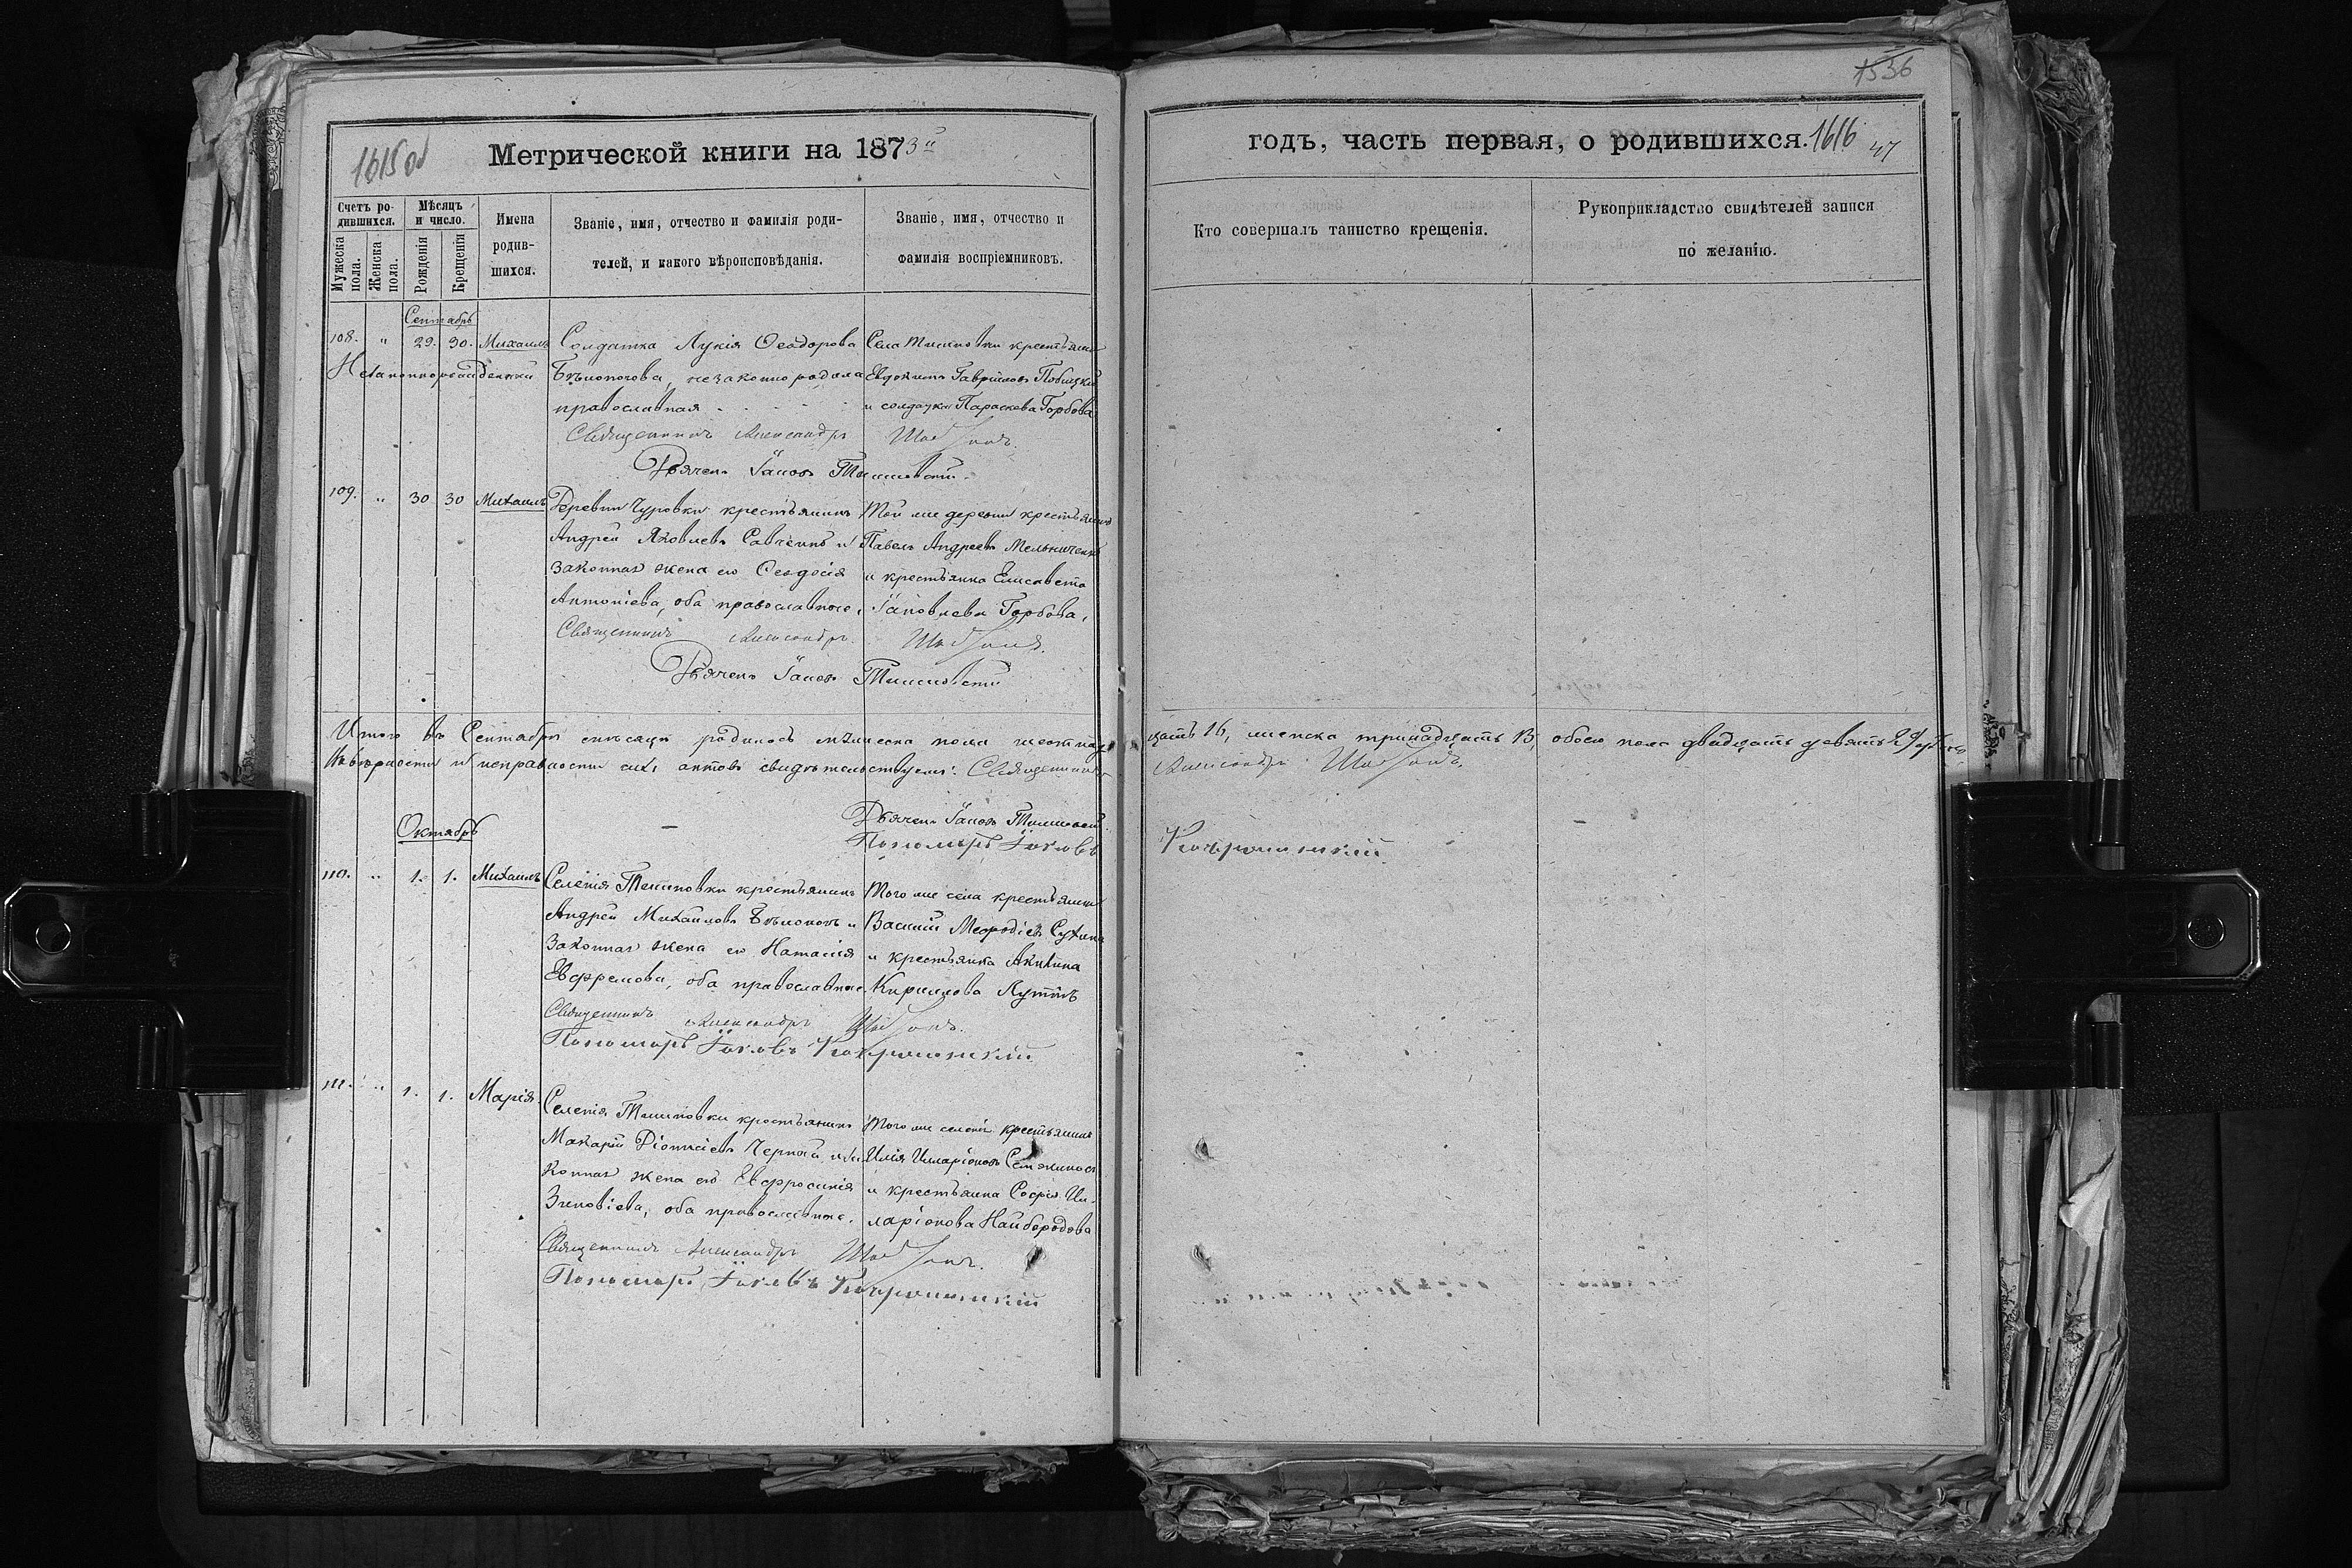 1536
1615 об
Метрической книги на 1873й
годъ, часть первая, о родившихся. 1616 47
Счетъ родившихся.
Мужеска пола.
Женска пола.
Мѣсяцъ и число.
Рожденія
Крещенія
Имена родившихся.
Званіе, имя, отчество и фамилія родителей, и какого вѣроисповѣданія.
Званіе, имя, отчество и фамилія воспріемниковъ.
Кто совершалъ таинство крещенія.
Рукоприкладство свидѣтелей записи по желанію.
Сентябрь
108. " 29. 30. Михаилъ
Незаконнорожденный
Солдатка Лукія Ѳеодорова
незаконно родила
православная
Села крестьянинъ
Евдокимъ Гавріиловъ
и солдатка Параскева Горбова
Священникъ Александръ
Дьячекъ Іаковъ
109. " 30 30 Михаилъ
Деревни Чуровки крестьянинъ
Андрей Яковлевъ Савченко и
законная жена его Ѳеодосія
Антоніева, оба православные.
Той же деревни крестьянинъ
Павелъ Андреевъ Мельниченко
и крестьянка Елисавета
Іаковлева Горбова.
Священникъ Александръ
Дьячекъ Іаковъ
Итого въ Сентябрѣ мѣсяцѣ родилось мужеска пола шестнадцать 16, женска тринадцать 13, обоего пола двадцать девять 29
вѣрности и исправности сихъ актовъ свидѣтельствуемъ: Священникъ Александръ
Дьячекъ Іаковъ
Пономарь Іаковъ
Октябрь
110. " 1. 1. Михаилъ
Селенія крестьянинъ
Андрей Михайловъ и
законная жена его Наталія
Евфремова, оба православные.
Того же села крестьянинъ
Василій Меѳодіевъ
и крестьянка Акилина
Кириллова
Священникъ Александръ
Пономарь Іаковъ
111. " 1. 1. Марія.
Селенія крестьянинъ
Макарій Діонисіевъ Черный и законная жена его Евфросинія
Зиновіева, оба православные.
Того же селенія крестьянинъ
Илія Иларіоновъ
и крестьянка Софія Иларіонова Найбородова
Священникъ Александръ
Пономарь Іаковъ